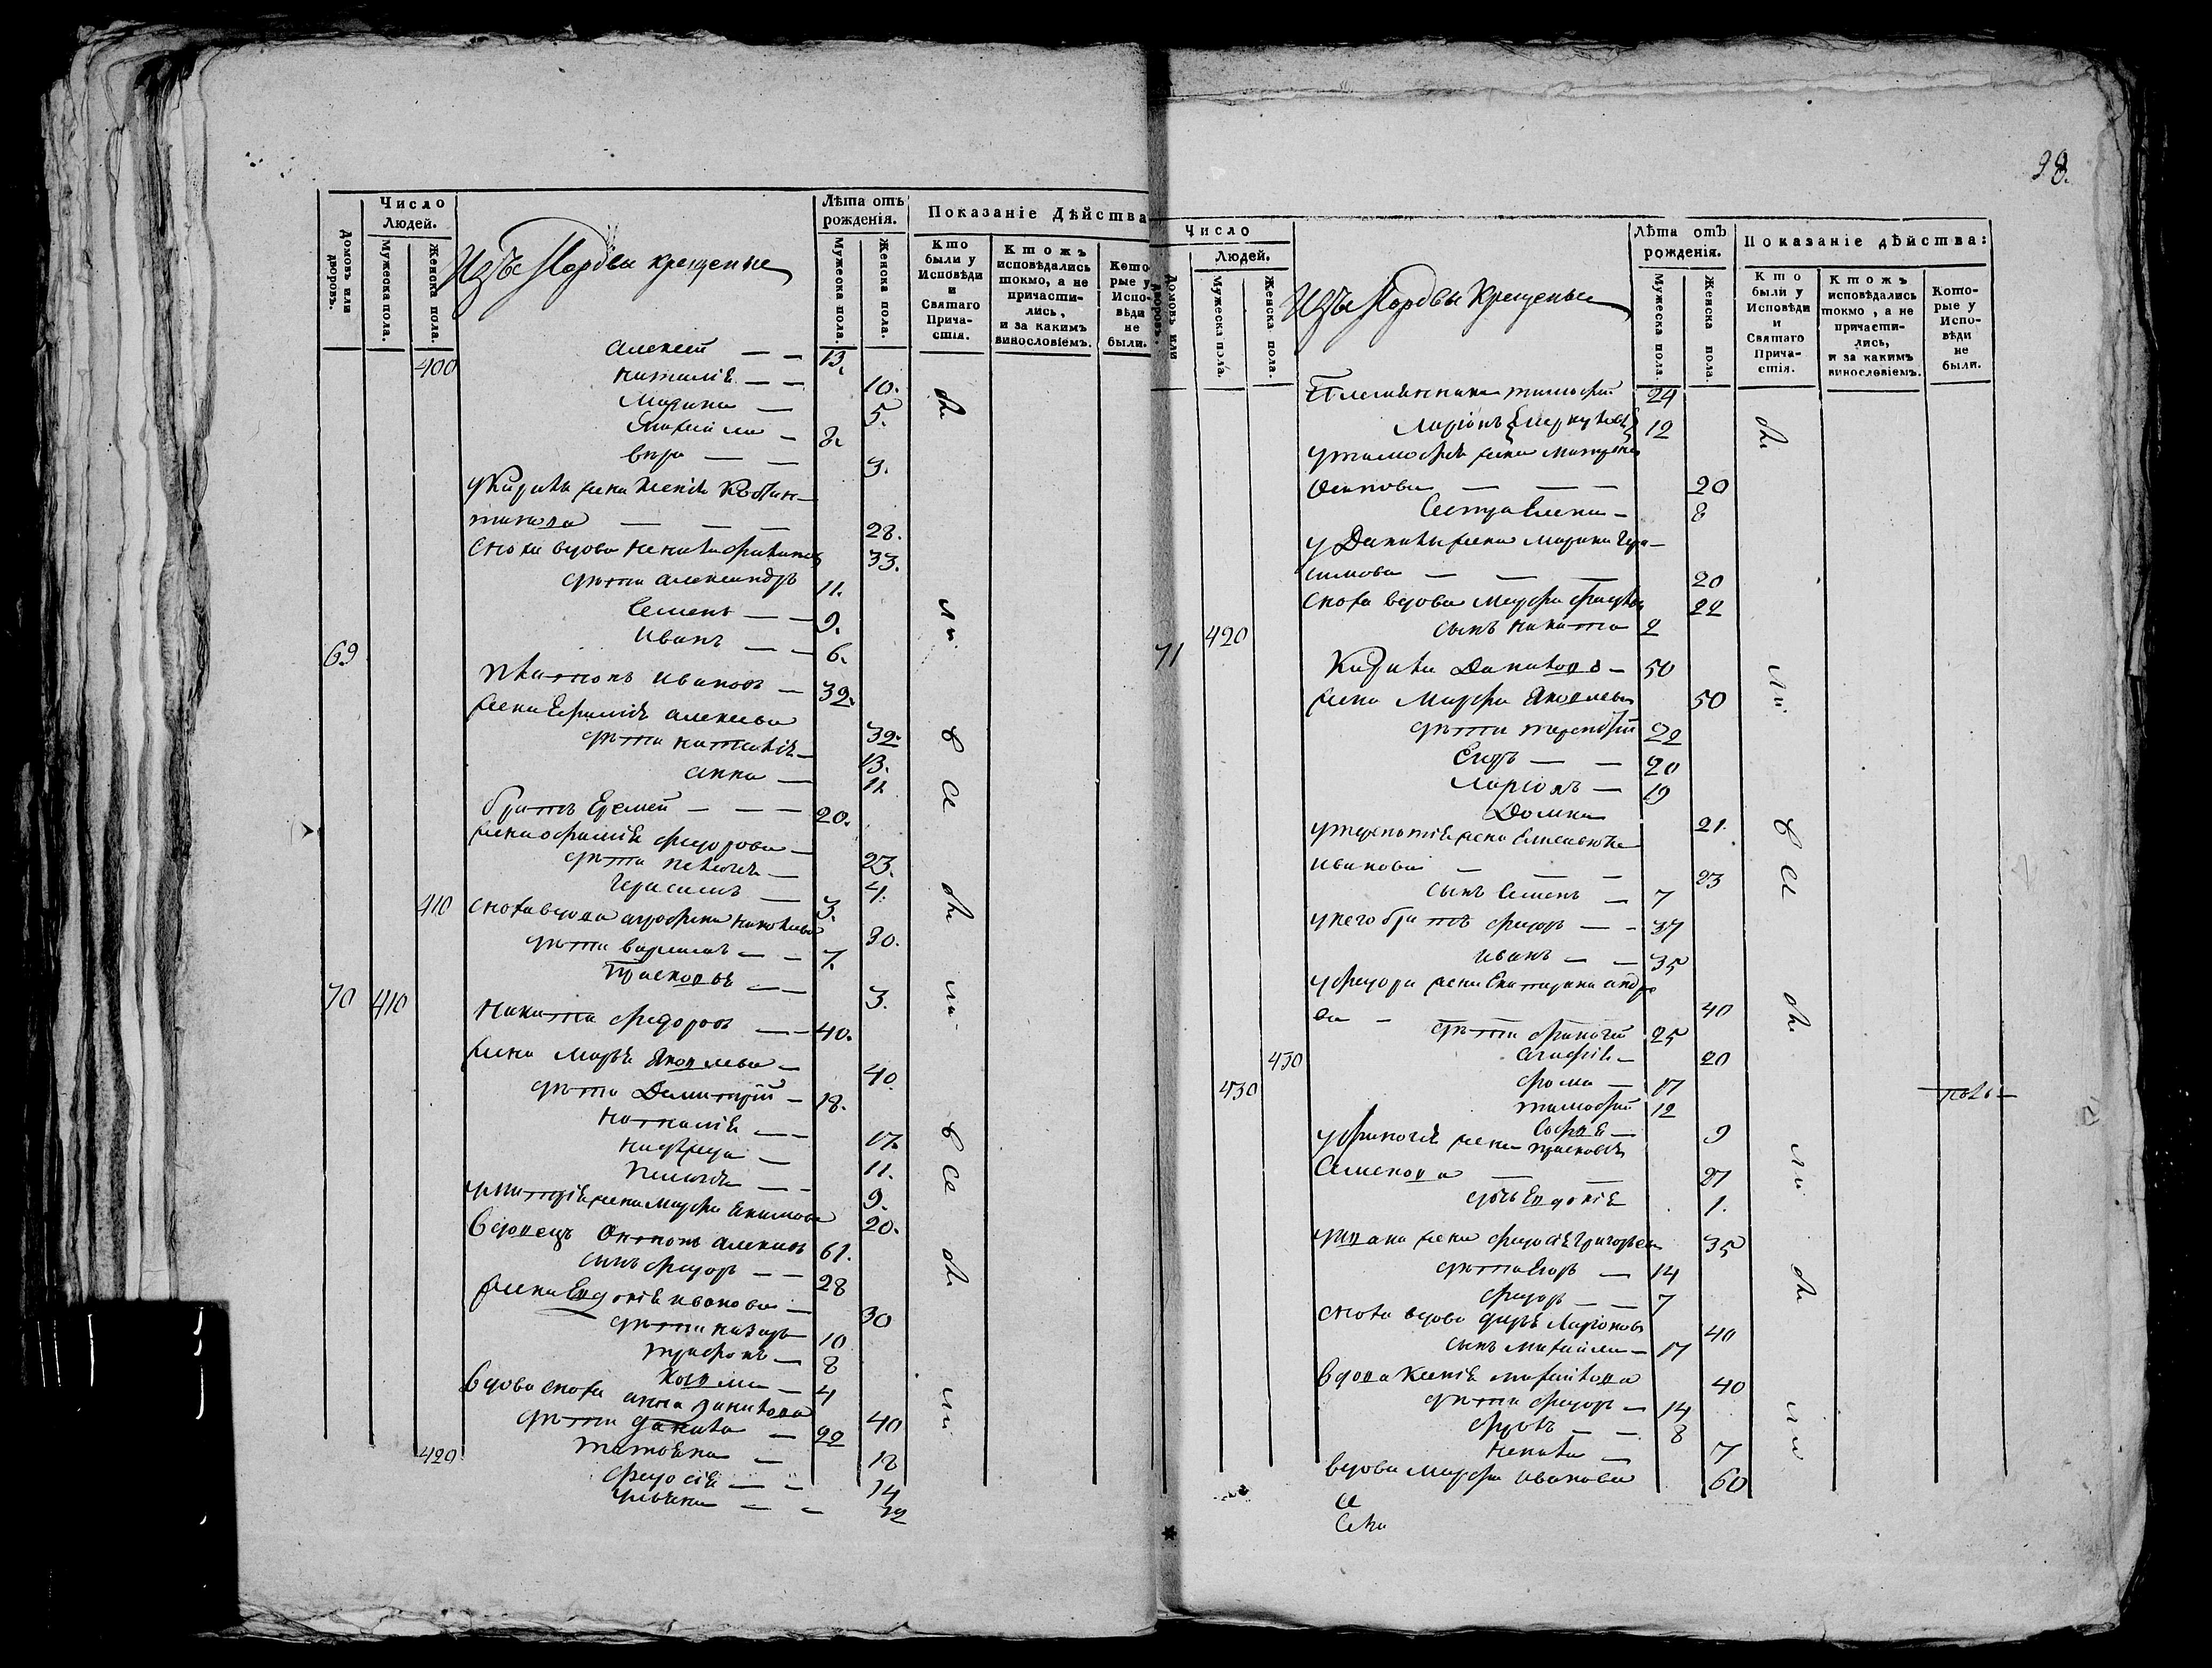 Число
Людей.
Домовъ или дворовъ.
Мужеска пола.
Женска пола.
Изъ Мордвы крещеные
Лѣта отъ рожденія.
Мужеска пола.
Женска пола.
Показаніе Дѣйства
Кто были у Исповѣди и Святаго Прича-стія.
Ктожъ исповѣдались токмо, а не причасти-лись, и за какимъ винословіемъ.
Кото-рые у Испо-вѣди не были.
Алексей — — 13.
400 Наталія — — 10.
Марина — 5.
Михаила — 8.
Вѣра — — 3.
У Кирилы жена Ксенія
— — — 28.
Сноха вдова 33.
дѣти Александръ 11.
Семенъ — — 9.
Иванъ — — 6.
69 Платонъ Ивановъ — 32.
Жена Ефимія Алексѣева 32.
дѣти Наталія — 13.
Анна — 11.
братъ Еремей — — — 20.
жена Офимія Федорова — 23.
дѣти Пелагія — 4.
Герасимъ — 3.
410 Сноха вдова 30.
дѣти — — 7.
Прасковья — — 3.
70 410 Никита Федоровъ — — 40.
Жена Марья Яковлева — 40.
дѣти Димитрій — 18.
Наталія — — 17.
Надежда — 11.
Пелагія — — 9.
У Митрія жена Марфа Екимова 20.
Вдовецъ Антонъ Алексѣевъ 61.
сынъ Федоръ — — 28
Жена Евдокія Иванова — 30
дѣти Назаръ 10
Трифонъ — 8
Козма — 4
Вдова сноха Анна Данилова 40
дѣти Данила — 22
420 Татьяна — 18
Федосія — — 14
Ульяна — — 12
Всѣ были
98.
Число
Людей.
Домовъ или дворовъ.
Мужеска пола.
Женска пола.
Изъ Мордвы Крещеные
Лѣта отъ рожденія.
Мужеска пола.
Женска пола.
Показаніе дѣйства:
Кто были у Исповѣди и Святаго Прича-стія.
Ктожъ исповѣдались токмо, а не причасти-лись, и за какимъ винословіемъ.
Кото-рые у Испо-вѣди не были.
Племянники Тимофей 24
Ларіонъ 12
У Тимофея жена Матрена
Осипова — — — 20
Сестра Елена — 8
У Данилы жена Марина Гера-
симова — — — 20
Сноха вдова Марфа 22
420 сынъ Никита 2
71 Кирила Даниловъ — 50
Жена Марфа Яковлева 50
дѣти Терентій 22
Егоръ — — 20
Ларіонъ — 19
Домна 21.
У Терентія жена
Иванова — — — 23
сынъ Семенъ — 7
У него братъ Федоръ — — 37
Иванъ — — 35
У Федора жена Екатерина Андре
ева — 40
дѣти 25
430 Агафія — 20
430 Фома — 17
Тимофей 12
Софія — 9
жена Прасковья
Семенова — — 27
дочь Евдокія 1.
У Ивана жена Федосія Григорьева 35
дѣти Егоръ — 14
Федоръ — — 7
Сноха вдова Дарья Ларіонова 40
сынъ Михаила — 17
Вдова Ксенія Михайлова 40
дѣти Федоръ — 14
— — 8
— 7
Вдова Марфа Иванова 60